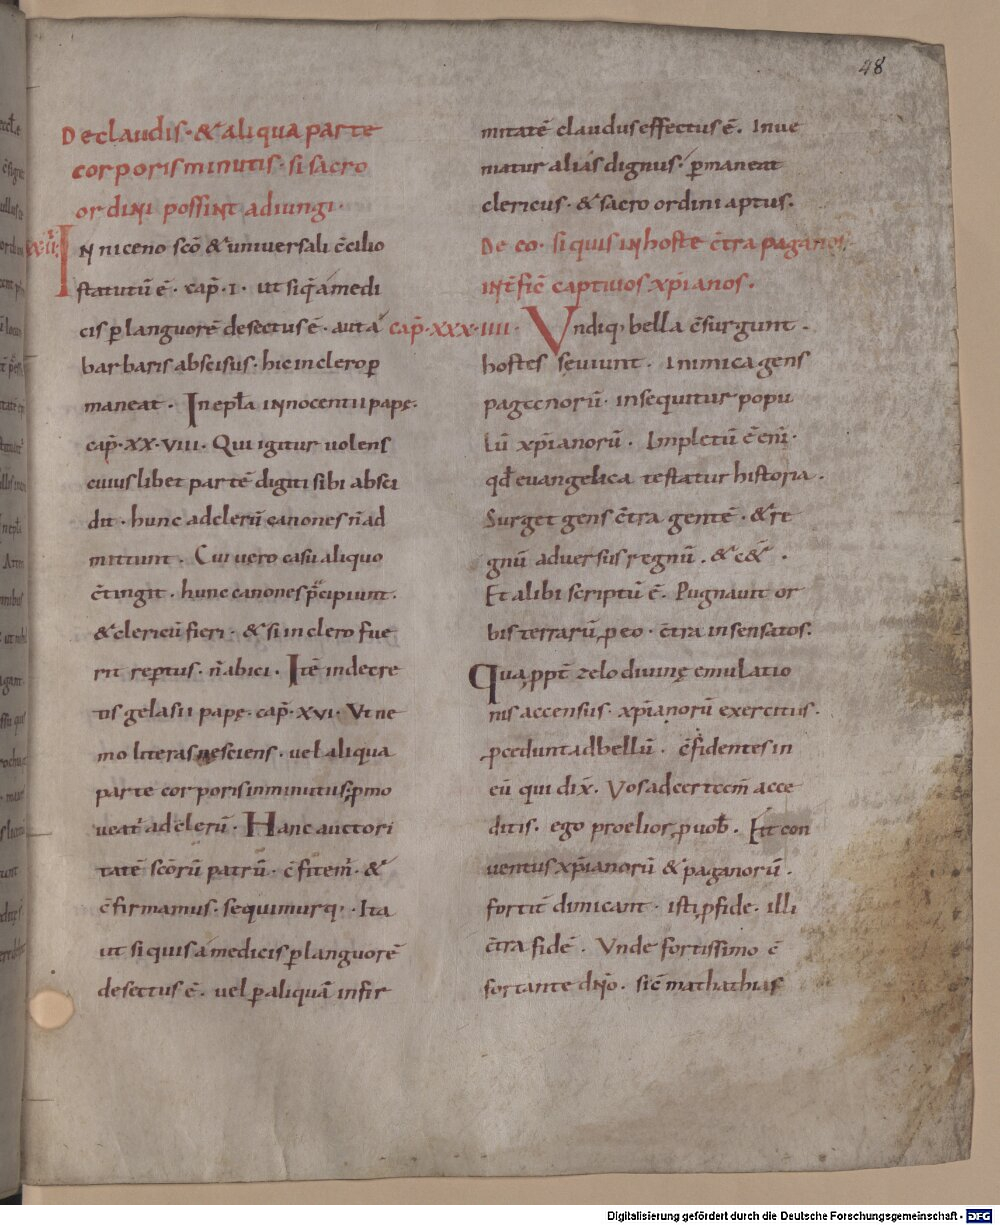 48
De claudis · & aliqua parte
corporis minutis · si sacro
ordini possint adiungi ·
IN niceno scō & universali c̄cilio
statutū ē · cap̄ · I · ut si q̄s a medi
cis ꝑ languorē desectus ē · aut a
barbaris abscisus · hic in clero ꝑ
maneat · In epl̄a innocentii papę ·
cap̄ · XX · VIII · Qui igitur uolens
cuiuslibet partē digiti sibi absci
dit · hunc ad clerū canones n̄ ad
mittunt · Cui vero casu aliquo
c̄tingit · hunc canones p̄cipiunt ·
& clericū fieri · & si in clero fue
rit reptus · n̄ abici · Itē in decre
tis gelasii papę · cap̄ · XVI · Ut ne
mo literas nesciens · uel aliqua
parte corporis inminutus ꝓmo
ueat᷑ ad clerū · Hanc auctori
tatē scōrū patrū · c̄fitem᷑ · &
c̄firmamus · sequimurq · Ita
ut si quis a medicis ꝑ languorē
desectus ē · uel ꝑ aliquā infir
mitatē claudus effectus ē · Inue
niatur alias dignus · ꝑmaneat
clericus · & sacro ordini aptus ·
De eo · si quis in hoste c̄tra paganos
int̄fic̄ captiuos xp̄ianos ·
cap̄ · XXX · IIII · Undiq bella c̄surgunt ·
hostes sęuiunt · Inimica gens
paganorū · insequitur popu
lū xp̄ianorū · Impletū ē eni᷑ ·
qd̄ euangelica testatur historia ·
Surget gens c̄tra gentē · & re
gnū aduersus regnū · & c& ·
Et alibi scriptū ē · Pugnauit or
bis terrarū ꝓ eo · c̄tra insensatos ·
Qua ꝓpt̄ zelo diuinę emulatio
nis accensus · xp̄ianorū exercitus ·
ꝓcedunt ad bellū · c̄fidentes in
eū qui dix̄ · Vos ad certam̄ acce
ditis · ego proelior ꝓ uob̄ · Fit con
uentus xp̄ianorū & paganorū ·
fortit̄ dimicant · isti ꝓ fide · illi
c̄tra fidē · Unde fortissimo c̄
fortante dn̄o · sic̄ mathathias
Digitalisierung gefördert durch die Deutsche Forschungsgemeinschaft - DFG